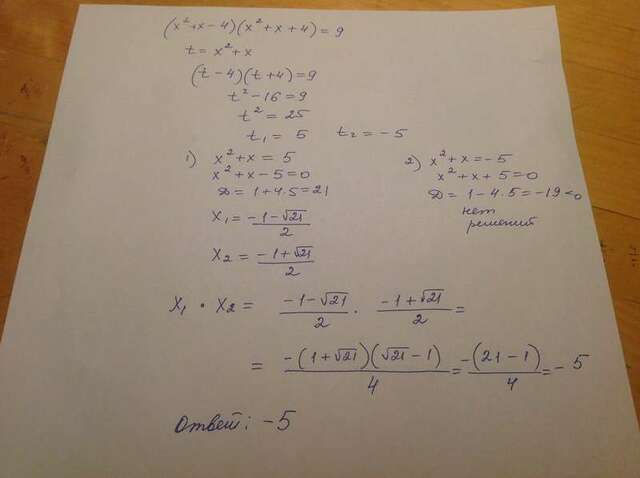 (x²+x-4)(x²+x+4)=9
t=x²+x
(t-4)(t+4)=9
t²-16=9
t²=25
t₁=5 t₂=-5
1) x²+x=5
x²+x-5=0
D=1+4·5=21
x₁=(-1-√21)/2
x₂=(-1+√21)/2
2) x²+x=-5
x²+x+5=0
D=1-4·5=-19<0
нет
решений
x₁·x₂=(-1-√21)/2·(-1+√21)/2=
=-(1+√21)(√21-1)/4=-(21-1)/4=-5
Ответ: -5